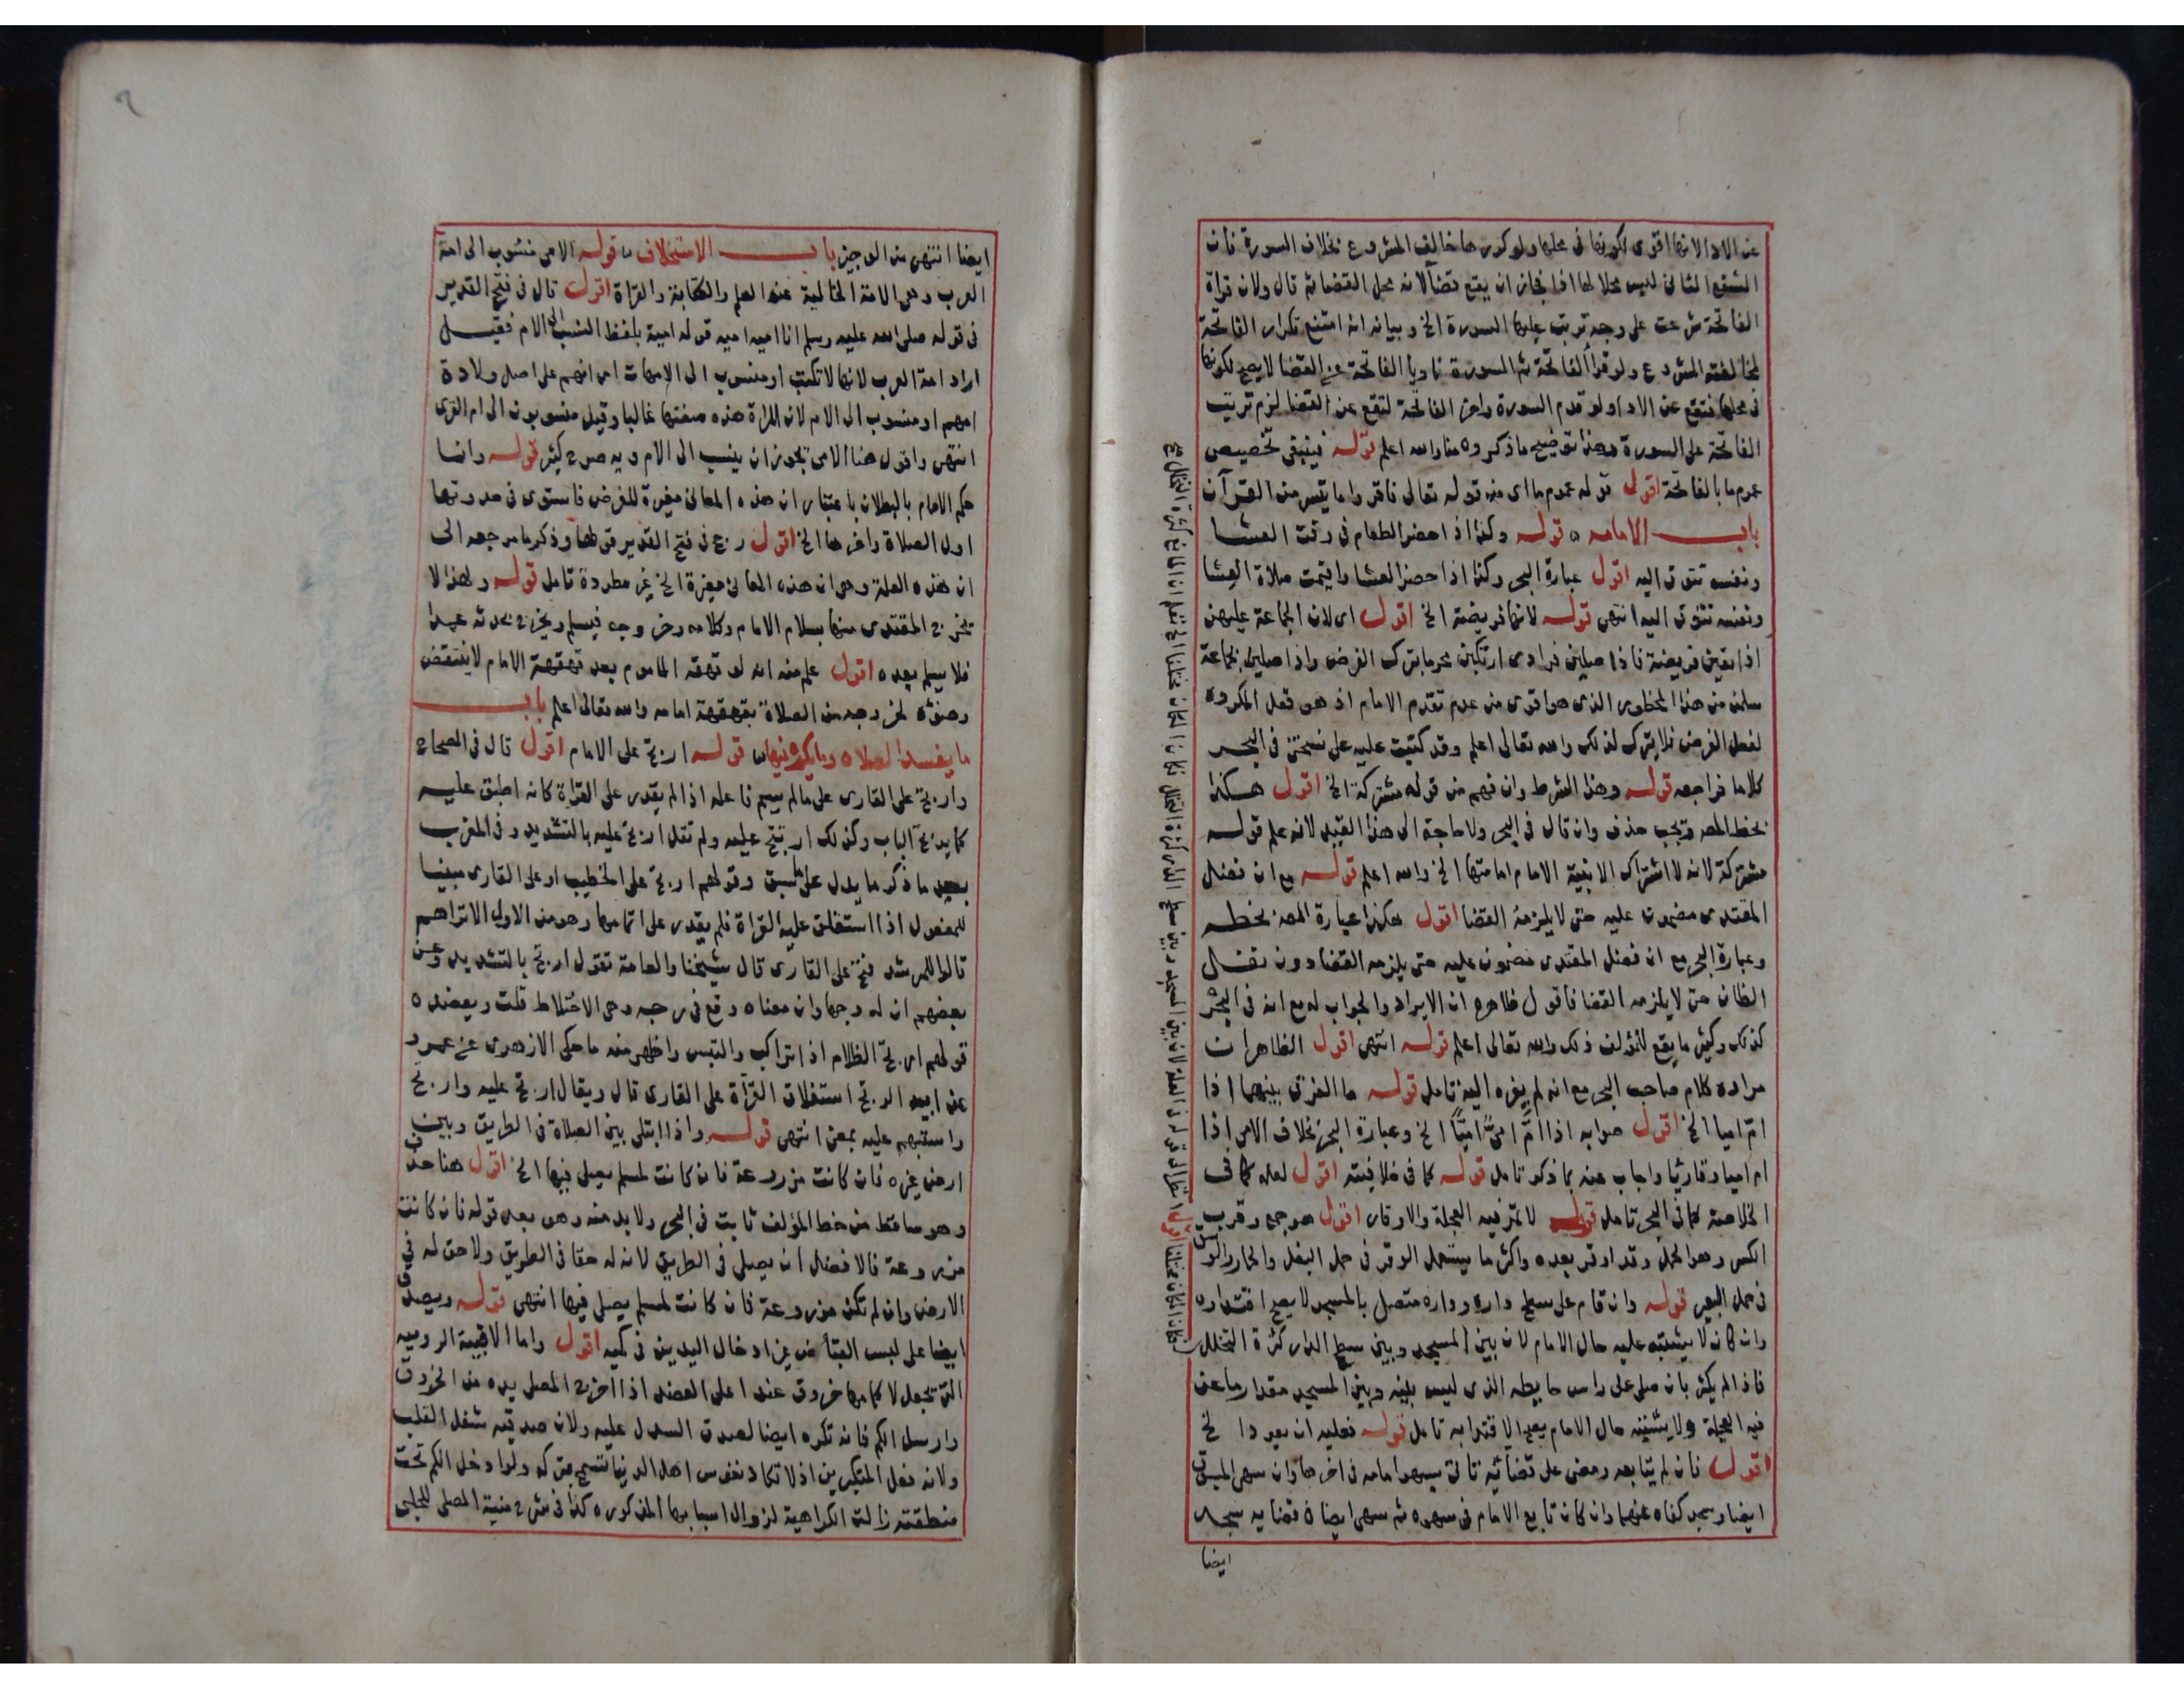 عن الاداء لانها اقوى لكونها فى محلها ولو كررها خالف المشروع بخلاف السورة فان
الشفع الثانى ليس محلا لها اذا فجاز ان يقع قضاء لانه محل القضا ثم قال ولان قراة
الفاتحة شرعت على وجه ترتب عليها السورة الخ وبيانه انه امتنع تكرار الفاتحة
لمخالفته المشروع ولو قرا الفاتحة ثم السورة ناويا الفاتحة عن القضا لا يصح لكونها
فى محلها فتقع عن الادا ولو قدم السورة واخر الفاتحة لتقع عن القضا لزم ترتيب
الفاتحة على السورة وهذا توضيح ما ذكروه هنا والله اعلم قوله فينبغى تخصيص
عموم ما بالفاتحة اقول قوله عموم ما اى منه قوله تعالى فاقروا ما تيسر من القرآن
باب الامامه قوله وكذا اذا حضر الطعام فى وقت العشا
ونفسه تتوق اليه اقول عبارة البحر وكذا اذا حضر العشا واقيمت صلاة العشا
ونفسه تتوق اليه انتهى قوله لانها فريضة الخ اقول اى لان الجماعة عليهن
اذا بقين فريضة فاذا صلين فرادى ارتكبن محرما بترك الفرض واذا صلين بجماعة
سلمن من هذا المحظور الذى هو اقوى من عدم تقدم الامام اذ هو فعل المكروه
لفعل الفرض فلا يترك لذلك والله تعالى اعلم وقد كتبت عليه على نسختى فى البحر
كلاما فراجعه قوله وهذا الشرط وان فهم من قوله مشتركة الخ اقول هكذا
بخط المصه ويجب حذف وان قال فى البحر ولا حاجة الى هذا القيد لانه علم قوله
مشتركة لانه لا اشتراك الا بنية الامام امامتها الخ والله اعلم قوله مع ان فضل
المقتدى مضمون عليه حتى لا يلزمه القضا اقول هكذا عبارة المصه بخطه
وعبارة البحر مع ان فضل المقتدى مضمون عليه حتى يلزمه القضا دون نفل
الظان حتى لا يلزمه القضا فاقول ظاهره ان الايراد والجواب له مع انه فى البحر
كذلك وكثيرا ما يقع للمؤلف ذلك والله تعالى اعلم قوله انتهى اقول الظاهر ان
مراده كلام صاحب البحر مع انه لم يعزه اليه تامل قوله ما الفرق بينهما اذا
ام اميا الخ اقول صوابه اذا امَّ امىٌّ اميًّا الخ وعبارة البحر بخلاف الامى اذا
ام اميا وقارئا واجاب عنه بما ذكر تامل قوله كما فى خلافيته اقول لعله كما فى
الخلاصة كما فى البحر تامل قوله لا تمر فيه العجلة والاوقار اقول هو جمع وقر ب
الكسر وهو الحمل وقد اوقر بعيره واكثر ما يستعمل الوقر فى حمل البغل والحمار والوسق
فى حمل البعير قوله وان قام على سطح داره وداره متصل بالمسجد لا يصح اقتداوه
وان كان لا يشتبه عليه حال الامام لان بين المسجد وبين سطح الدار كثرة التخلل
فاذا لم يكثر بان صلى على راس حايطه الذى ليس بينه وبين المسجد مقدار ما عن
فيه العجلة ولا يشتبه حال الامام يصح الاقتدا به تامل قوله فعليه ان يعود الخ
اقول فان لم يتابعه ومضى على قضائه تاتى بسهو امامه فى اخرها وان سهى المسبوق
ايضا وسجد كفاه عنهما وان كان تابع الامام فى سهوه ثم سهى ايضا فى قضايه سجد
ايضا
ايضا انتهى من الوجيز باب الاستخلاف قوله الامى منسوب الى امة
العرب وهى الامة الخالية عند العلم والكتابة والقراة اقول قال فى فتح القدير
فى قوله صلى الله عليه وسلم انا امية امية قوله امية بلفظ النسب الى الام فقيل
اراد امة العرب لانها لا تكتب او منسوب الى الامهات اى انهم على اصل ولادة
امهم او منسوب الى الام لان المراة هذه صفتها غالبا وقيل منسوبون الى ام القرى
انتهى واقول هنا الامى يجوز ان ينسب الى الام وبه صرح كثير قوله وانما
حكم الامام بالبطلان باعتبار ان هذه المعانى مغيرة للفرض فاستوى فى حدوثها
اول الصلاة واخرها الخ اقول رجح فى فتح القدير قولهما وذكر ما مرجعه الى
ان هذه العلة وهى ان هذه المعانى مغيرة الخ غير مطردة تامل قوله ولهذا لا
تخرج المقتدى منها بسلام الامام وكلامه وخروجه فيسلم ويخرج بحدثه عمدا
فلا يسلم بعده اقول علم منه انه لو قهقه الماموم بعد قهقهة الامام لا ينتقض
وضوئه لخروجه من الصلاة بقهقهة امامه والله تعالى اعلم باب
ما يفسد الصلاه وما يكره فيها قوله ارتج على الامام اقول قال فى الصحاح
وارتج على القارى على ما لم يسم فاعله اذا لم يقدر على القراة كانه اطبق عليه
كما يرتج الباب وكذلك ارتتج عليه ولم تقل ارتج عليه بالتشديد وفى المغرب
بعد ما ذكر ما يدل على طبق وقولهم ارتج على الخطيب او على القارى مبنيا
للمفعول اذا استغلق عليه القراة فلم يقدر على اتمامها وهو من الاول الا تراهم
قالوا للمرشد فتح على القارى قال شيخنا والعامة تقول ارتج بالتشديد وعن
بعضهم ان له وجها وان معناه وقع فى رجة وهى الاختلاط قلت ويعضده
قولهم ارتج الظلام اذا تراكب والتبس واظهر منه ما حكى الازهرى عن عمرو
عن ابيه الرتج استغلاق القرآة على القارى قال ويقال ارتج عليه وارتج
واستبهم عليه بمعنى انتهى قوله واذا ابتلى بين الصلاة فى الطريق وبين
ارض غيره فان كانت مزروعة فان كانت لمسلم يصلى فيها الخ اقول هنا حذف
وهو ساقط من خط المؤلف ثابت فى البحر ولا بد منه وهو بعد قوله فان كانت
مزروعة فالافضل ان يصلى فى الطريق لانه له حقا فى الطريق ولا حق له فى
الارض وان لم تكن مزروعة فان كانت لمسلم يصلى فيها انتهى قوله ويصدق
ايضا على لبس القبا من غير ادخال اليدين فى كميه اقول واما الاقبية الروميه
التى تجعل لاكمامها خروق عند اعلى العضد اذا اخرج المصلى يده من الخروق
وارسل الكم فانه تكره ايضا لصدق السدل عليه ولان صدقيه شغل القلب
ولانه فعل المتكبرين اذ لا تكاد نفوس اهل الدنيا تسمح بتركه ولو ادخل الكم تحت
منطقته زالت الكراهية لزوال اسبابها المذكوره كذا فى شرح منية المصلى للحلبى